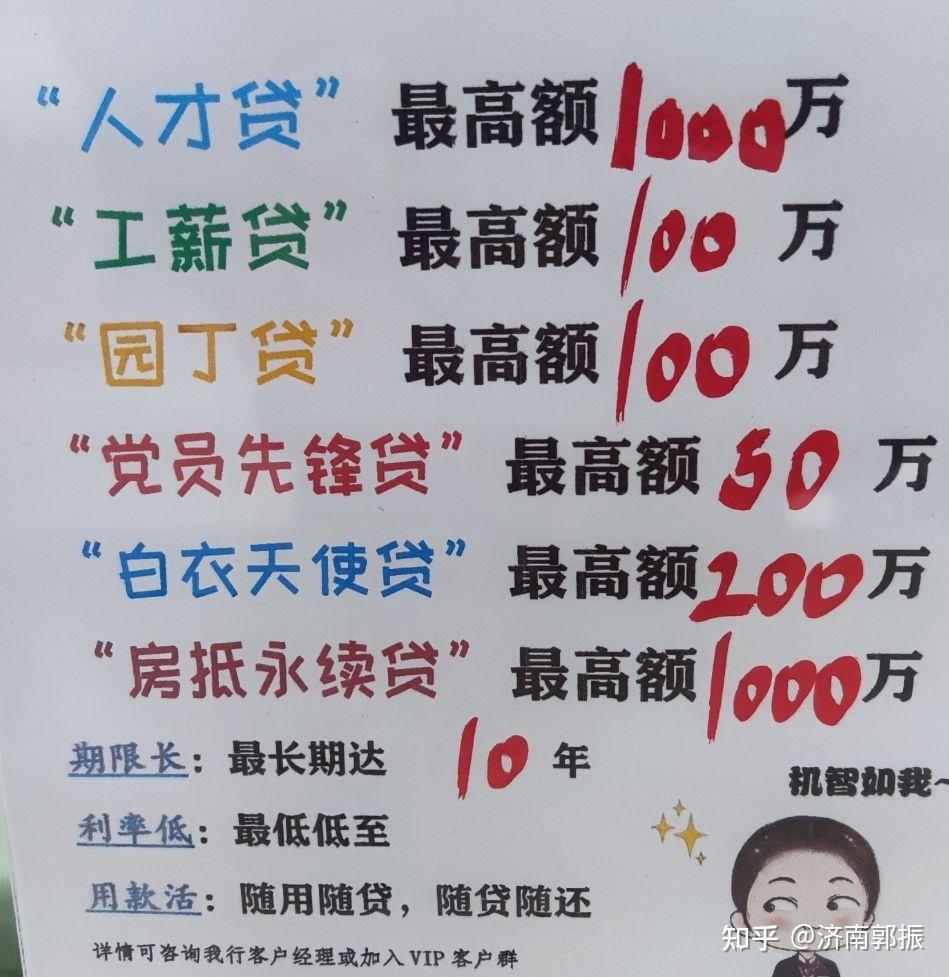 “人才贷” 最高额1000万
“工薪贷” 最高额100万
“园丁贷” 最高额100万
“党员先锋贷” 最高额50万
“白衣天使贷” 最高额200万
“房抵永续贷” 最高额1000万
期限长：最长期达 10 年
机智如我~
利率低：最低低至
用款活：随用随贷，随贷随还
详情可咨询我行客户经理或加入VIP客户群
知乎 @济南郭振